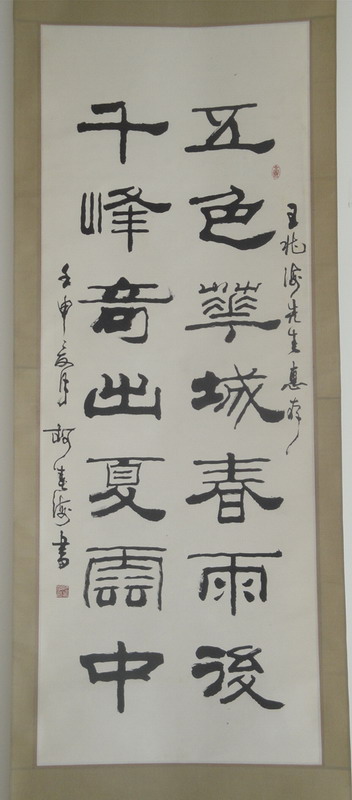 王兆海先生惠存
五色華城春雨後
千峰奇出夏雲中
壬申夏月 春海書